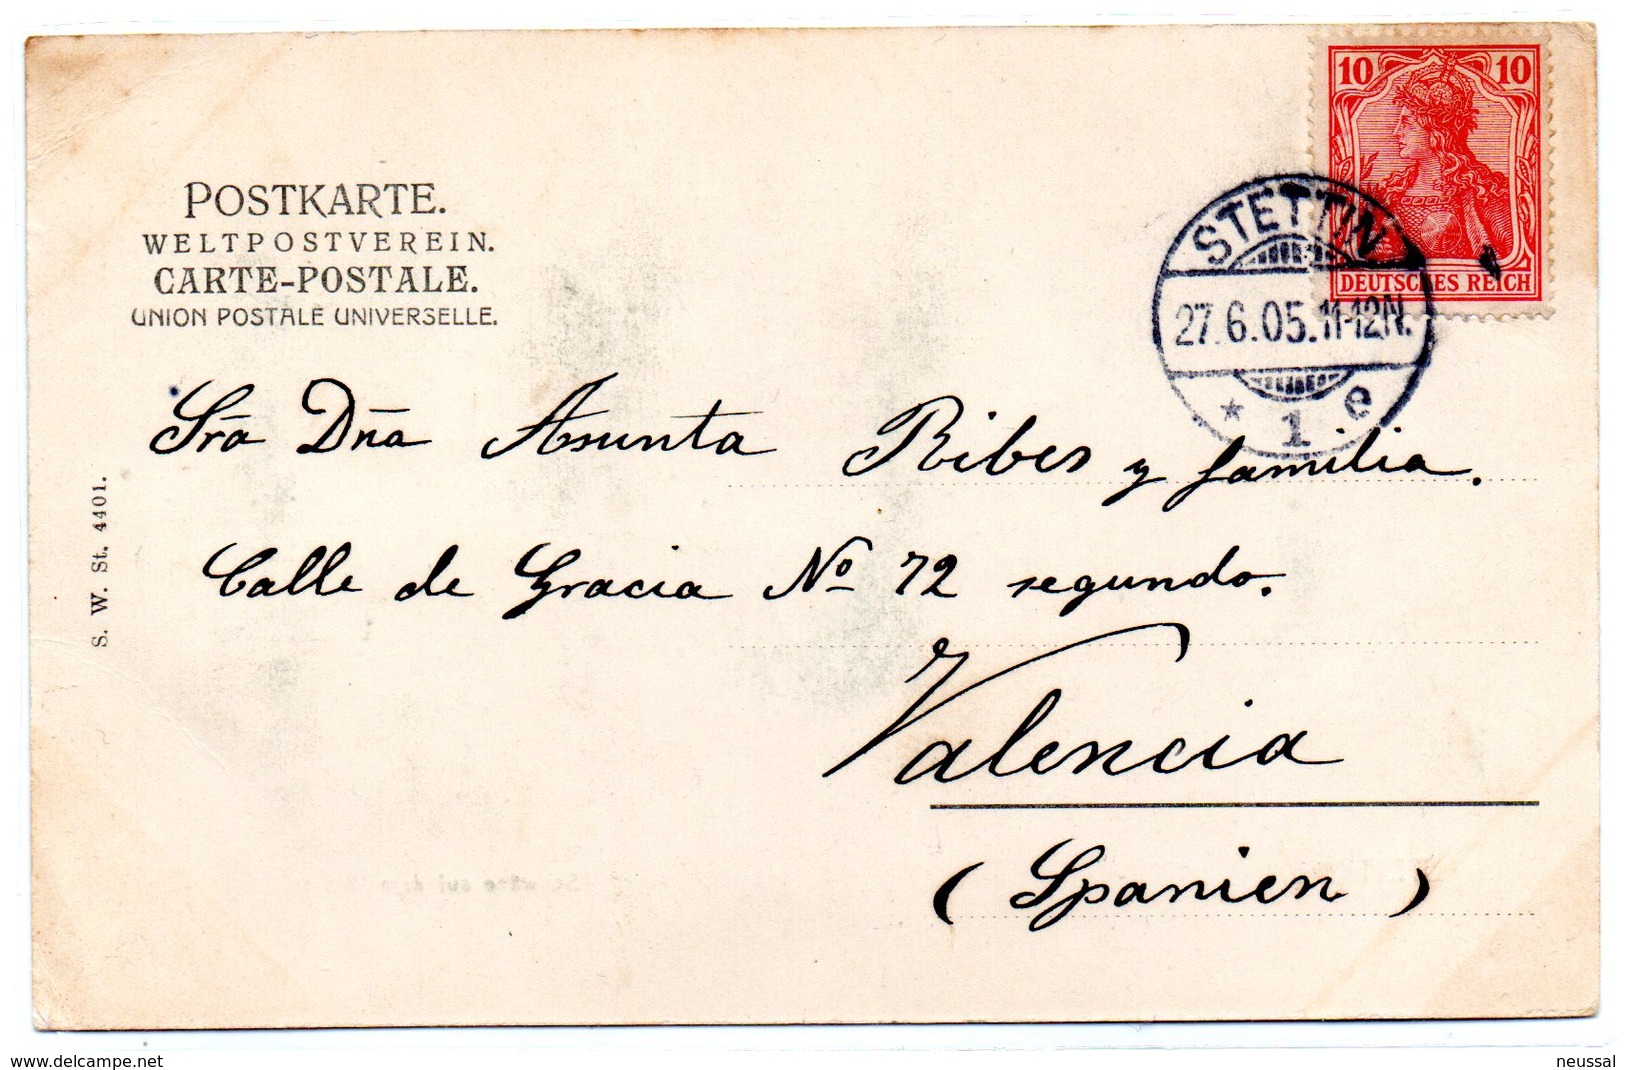 10 10
DEUTSCHES REICH
STETTIN
27.6.05.11-12N.
* 1 e
POSTKARTE.
WELTPOSTVEREIN.
CARTE-POSTALE.
UNION POSTALE UNIVERSELLE.
Sra Dña Asunta Ribes y familia.
Calle de Gracia No 72 segundo.
Valencia
(Spanien)
S. W. St. 4401.
delcampe.net
neussal